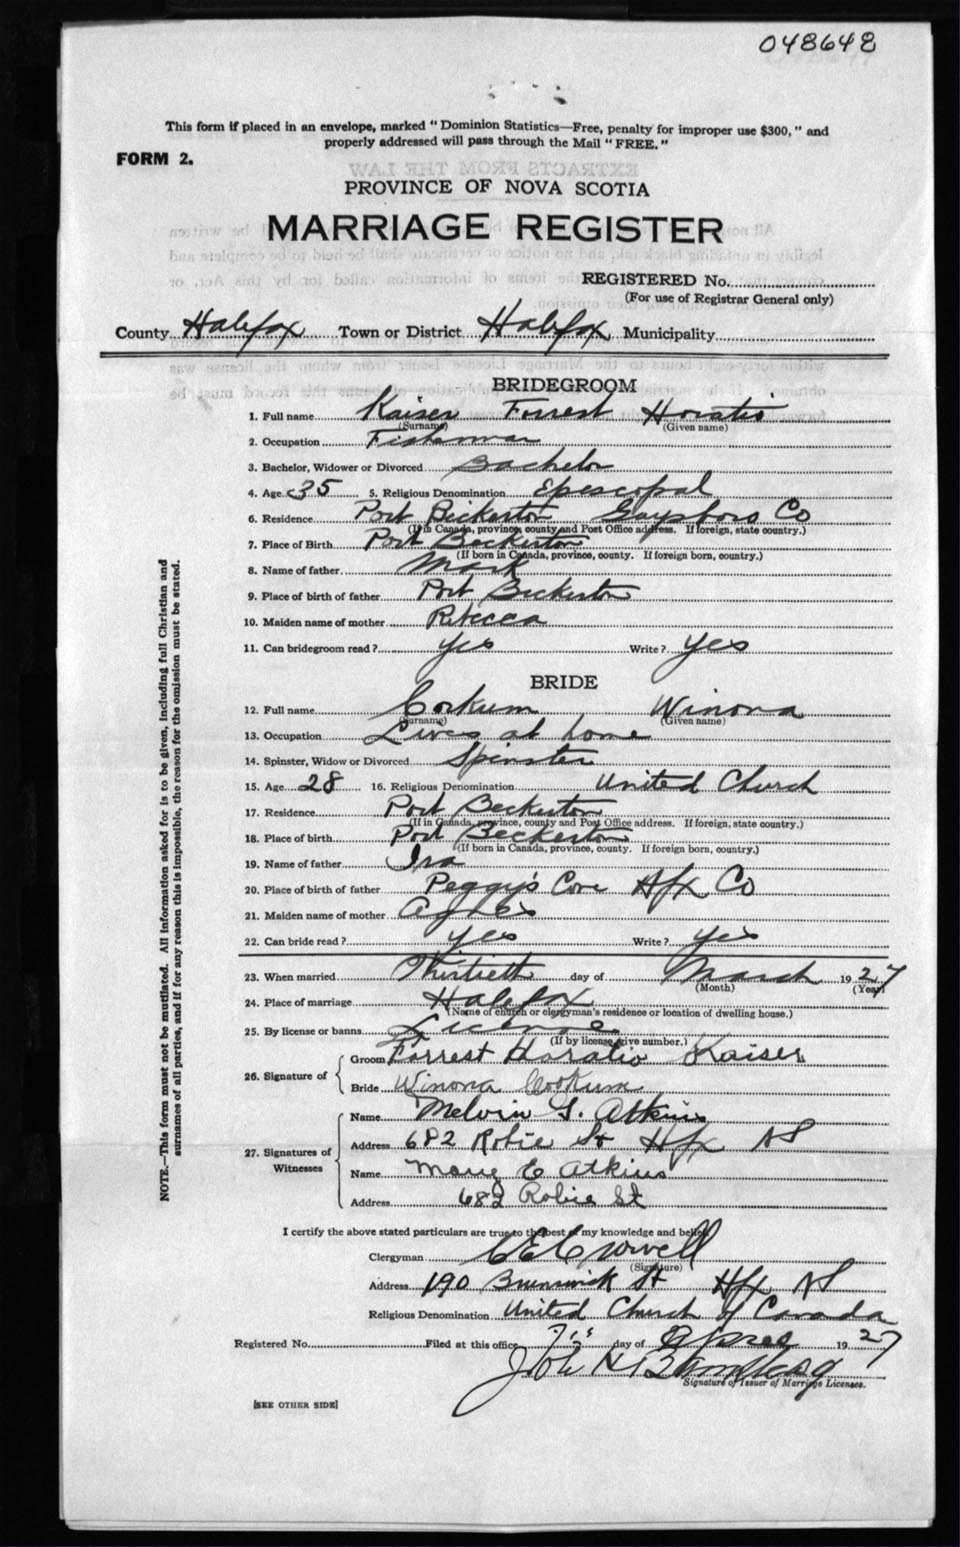 048648
This form if placed in an envelope, marked "Dominion Statistics—Free, penalty for improper use $300," and
properly addressed will pass through the Mail "FREE."
FORM 2.
EXTRACTS FROM THE LAW
PROVINCE OF NOVA SCOTIA
MARRIAGE REGISTER
REGISTERED No.
(For use of Registrar General only)
County Halifax Town or District Halifax Municipality
BRIDEGROOM
1. Full name Kaiser Forrest Horatio
(Surname) (Given name)
2. Occupation Fisherman
3. Bachelor, Widower or Divorced Bachelor
4. Age 35 5. Religious Denomination Episcopal
6. Residence Port Bickerton Gaysboro Co
(If in Canada, province, county and Post Office address. If foreign, state country.)
7. Place of Birth Port Beckerton
(If born in Canada, province, county. If foreign born, country.)
8. Name of father Mark
9. Place of birth of father Port Beckerton
10. Maiden name of mother Rebecca
11. Can bridegroom read? yes Write? yes
BRIDE
12. Full name Corkum Winona
(Surname) (Given name)
13. Occupation Lives at home
14. Spinster, Widow or Divorced Spinster
15. Age 28 16. Religious Denomination United Church
17. Residence Port Beckerton
(If in Canada, province, county and Post Office address. If foreign, state country.)
18. Place of birth Port Beckerton
(If born in Canada, province, county. If foreign born, country.)
19. Name of father Ira
20. Place of birth of father Peggy's Cove Hfx Co
21. Maiden name of mother Agnes
22. Can bride read? yes Write? yes
23. When married Thirtieth day of March 1927
(Month) (Year)
24. Place of marriage Halifax
(Name of church or clergyman's residence or location of dwelling house.)
25. By license or banns License
(If by license, give number.)
26. Signature of
Groom Forrest Horatio Kaiser
Bride Winona Corkum
27. Signatures of Witnesses
Name Melvin S. Atkins
Address 682 Robie St Hfx NS
Name Mary E Atkins
Address 682 Robie St
I certify the above stated particulars are true to the best of my knowledge and belief.
Clergyman C E Crowell
(Signature)
Address 190 Brunswick St Hfx NS
Religious Denomination United Church of Canada
Registered No. Filed at this office day of 1927
Signature of Issuer of Marriage Licenses.
[SEE OTHER SIDE]
NOTE.—This form must not be mutilated. All information asked for is to be given, including full Christian and
surnames of all parties, and if for any reason this is impossible, the reason for the omission must be stated.